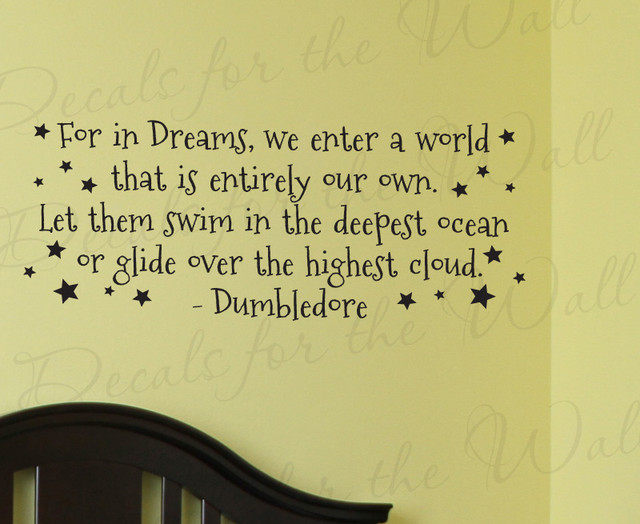 Decals for the Wall
For in Dreams, we enter a world
that is entirely our own.
Let them swim in the deepest ocean
or glide over the highest cloud.
- Dumbledore
Decals for the Wall
Decals for the Wall
Decals for the Wall